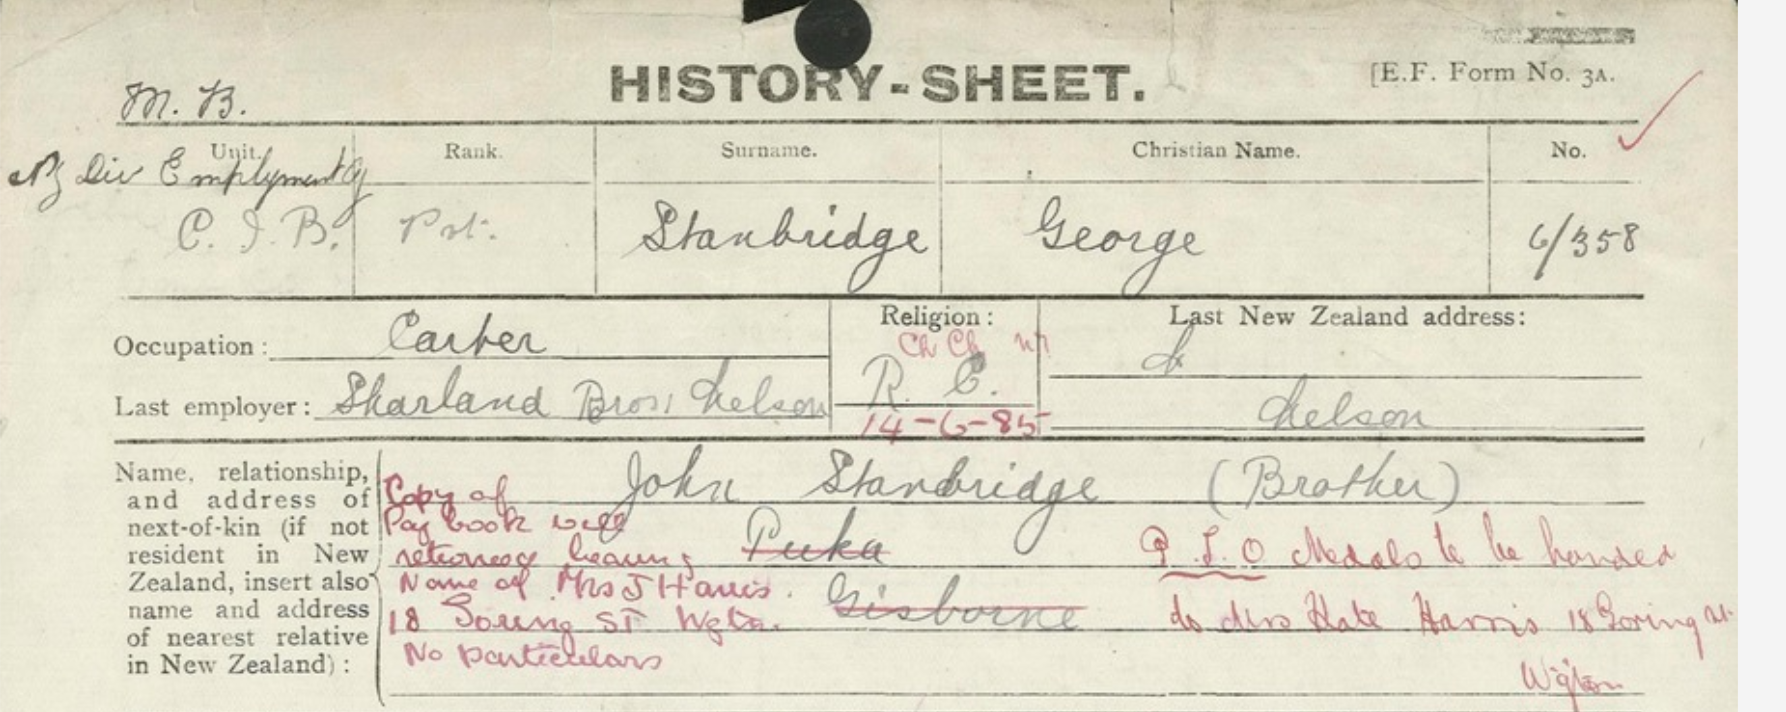 HISTORY-SHEET.
[E.F. Form No. 3A.
M. B.
Unit. Rank. Surname. Christian Name. No.
NZ Div Employment Coy
C. I. B. Pvt. Stanbridge George 6/358
Occupation: Carter
Religion: Ch Ch
R. C.
14-6-85
Last New Zealand address:
Nelson
Last employer: Sharland Bros, Nelson
Name, relationship, and address of next-of-kin (if not resident in New Zealand, insert also name and address of nearest relative in New Zealand):
John Stanbridge (Brother)
Puka
Gisborne
Copy of
Pay book will
bearing
Name of Mrs J Harris.
18 Goring ST Wgtn.
No particulars
Medals to be handed
to Mrs Kate Harris 18 Goring St.
Wgton